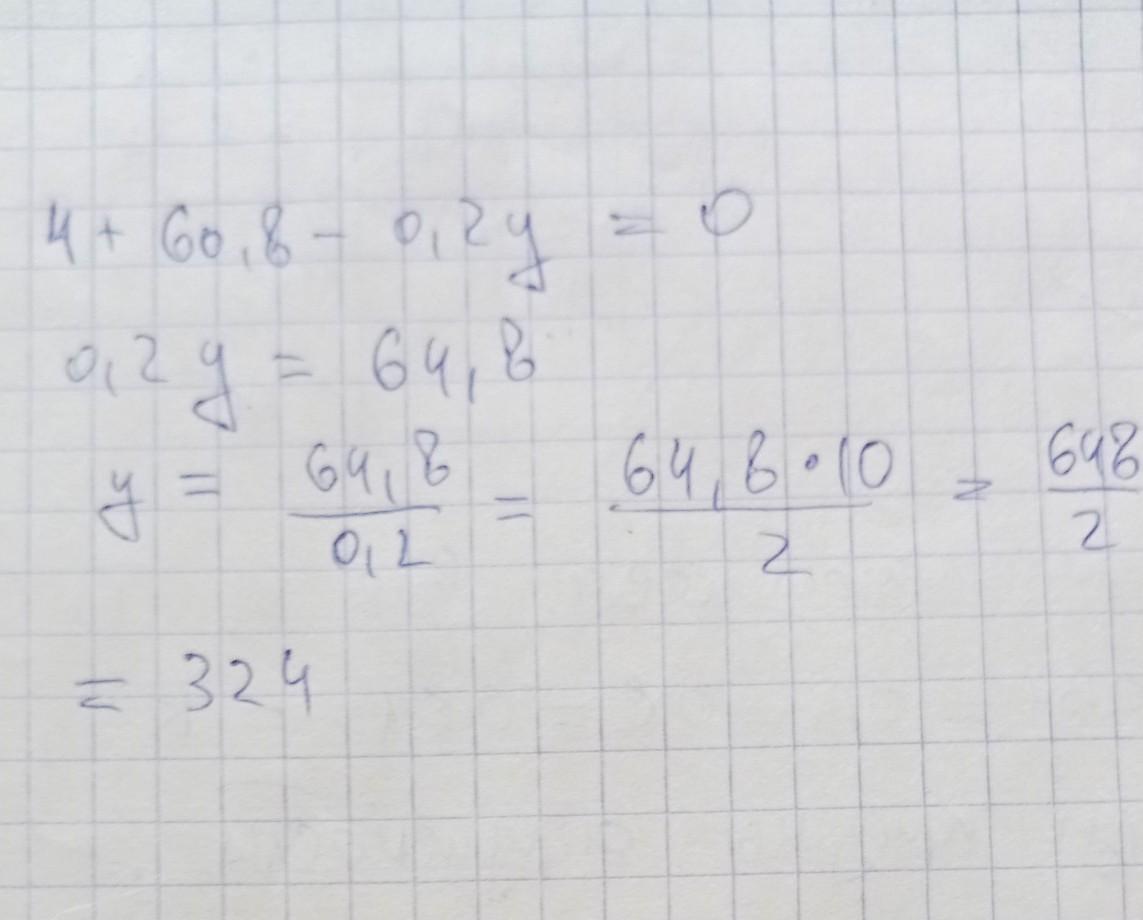 4 + 60,8 - 0,2y = 0
0,2y = 64,8
y = 64,8/0,2 = 64,8·10/2 = 648/2
= 324